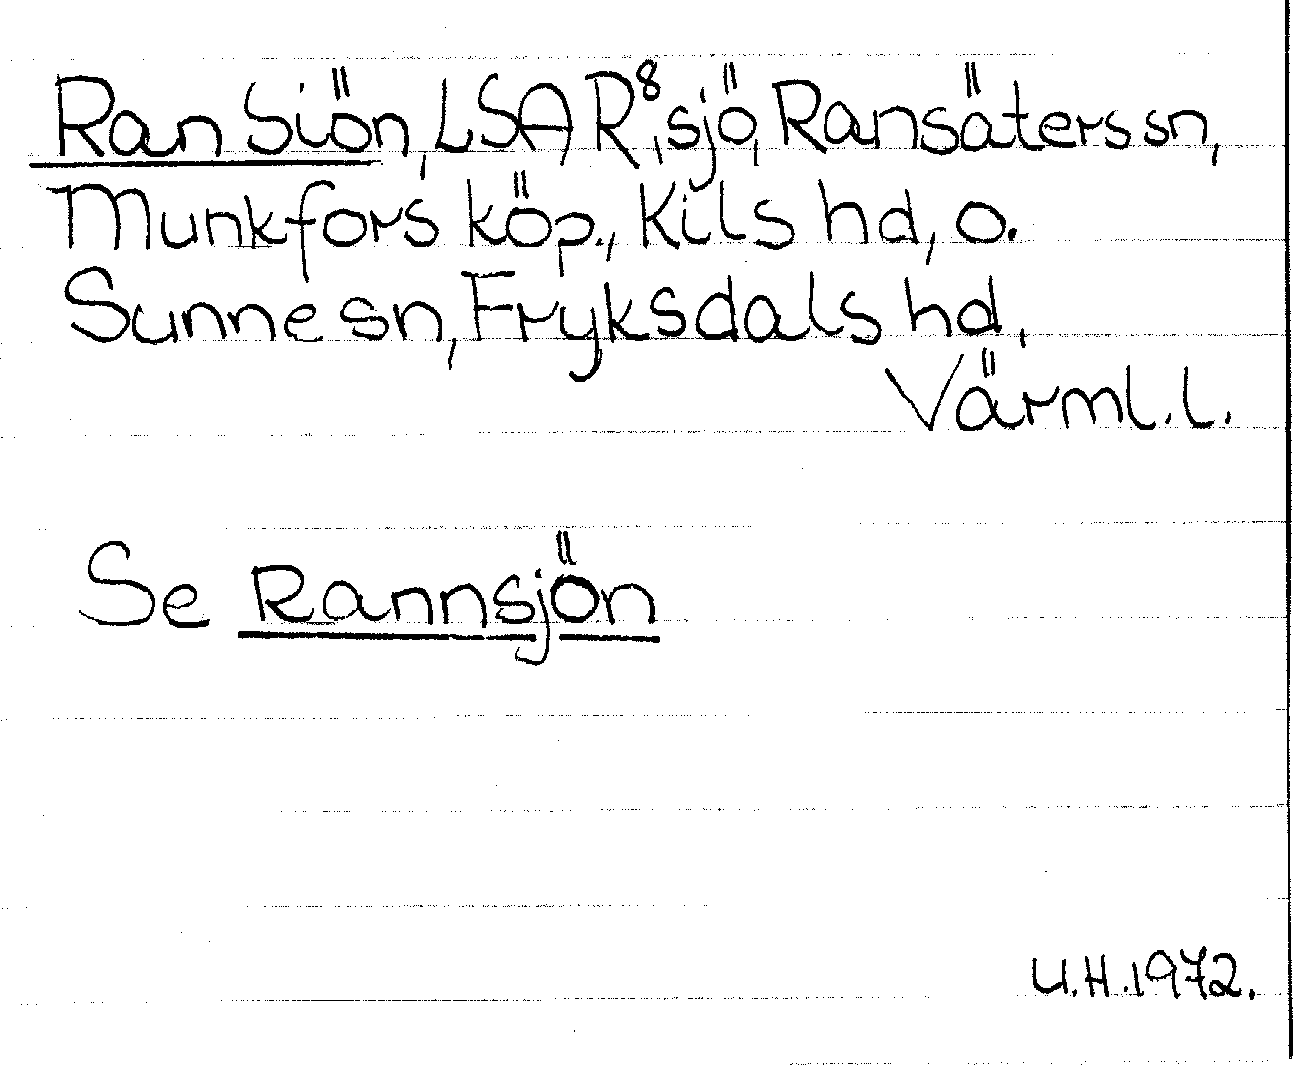 Ran Siön, LSA R⁸, sjö, Ransäters sn,
Munkfors köp., Kils hd, o.
Sunne sn, Fryksdals hd,
Värml. l.
Se Rannsjön
U.H. 1972.